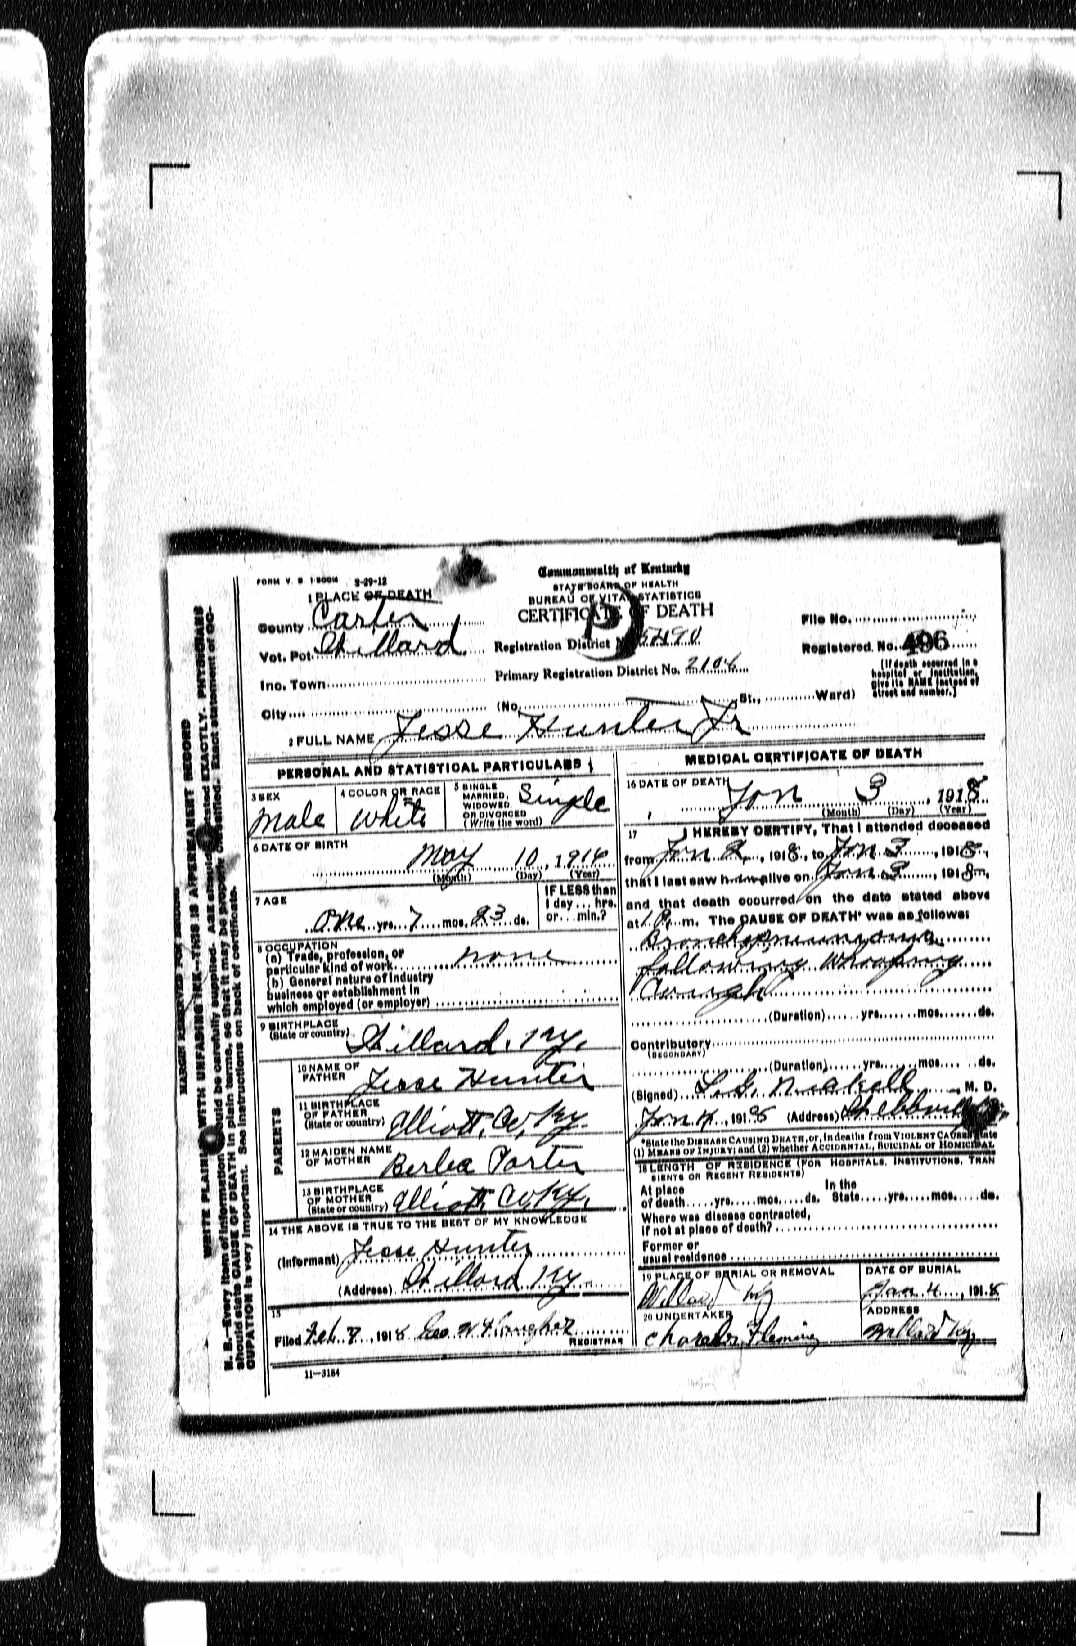 FORM V. S. 1-500M 3-29-12
Commonwealth of Kentucky
STATE BOARD OF HEALTH
BUREAU OF VITAL STATISTICS
CERTIFICATE OF DEATH
1 PLACE OF DEATH
County Carter
Vot. Pct. Willard
Inc. Town
City
Registration District No.
Primary Registration District No. 2104
(No. St., Ward)
File No.
Registered No. 496
[If death occurred in a
hospital or institution,
give its NAME instead of
street and number.]
2 FULL NAME Jesse Hunter Jr
PERSONAL AND STATISTICAL PARTICULARS
3 SEX
Male
4 COLOR OR RACE
White
5 SINGLE
MARRIED,
WIDOWED
OR DIVORCED
(Write the word)
Single
6 DATE OF BIRTH
May 10, 1916
(Month) (Day) (Year)
7 AGE
One yrs. 7 mos. 23 ds.
IF LESS than
1 day... hrs.
or... min.?
8 OCCUPATION
(a) Trade, profession, or
particular kind of work none
(b) General nature of industry
business or establishment in
which employed (or employer)
9 BIRTHPLACE
(State or country) Willard, Ky.
PARENTS
10 NAME OF
FATHER Jesse Hunter
11 BIRTHPLACE
OF FATHER
(State or country) Elliott, Co, Ky.
12 MAIDEN NAME
OF MOTHER Porter
13 BIRTHPLACE
OF MOTHER
(State or country) Elliott Co, Ky.
14 THE ABOVE IS TRUE TO THE BEST OF MY KNOWLEDGE
(Informant) Jesse Hunter
(Address) Willard Ky
15
Filed Feb. 8, 1918 Geo. W.
REGISTRAR
11-3184
MEDICAL CERTIFICATE OF DEATH
16 DATE OF DEATH
Jan 3, 1918
(Month) (Day) (Year)
17 I HEREBY CERTIFY, That I attended deceased
from Jan 2, 1918, to Jan 3, 1918,
that I last saw him alive on Jan 3, 1918,
and that death occurred, on the date stated above
at 1 P. m. The CAUSE OF DEATH* was as follows:
Bronchopneumonia
following Whooping
Cough
(Duration) yrs. mos. ds.
Contributory
(SECONDARY)
(Duration) yrs. mos. ds.
(Signed) L. G. Nickell, M. D.
Jan 4, 1918 (Address)
*State the DISEASE CAUSING DEATH, or, in deaths from VIOLENT CAUSES, state
(1) MEANS OF INJURY; and (2) whether ACCIDENTAL, SUICIDAL OR HOMICIDAL
18 LENGTH OF RESIDENCE (FOR HOSPITALS, INSTITUTIONS, TRAN
SIENTS OR RECENT RESIDENTS)
At place In the
of death yrs. mos. ds. State yrs. mos. ds.
Where was disease contracted,
if not at place of death?
Former or
usual residence
19 PLACE OF BURIAL OR REMOVAL
Willard Ky
DATE OF BURIAL
Jan 4, 1918
20 UNDERTAKER
Charles Fleming
ADDRESS
Willard Ky
MARGIN RESERVED FOR BINDING
WRITE PLAINLY WITH UNFADING INK--THIS IS A PERMANENT RECORD
N. B.--Every item of information should be carefully supplied. AGE should be stated EXACTLY. PHYSICIANS
should state CAUSE OF DEATH in plain terms, so that it may be properly classified. Exact statement of OC-
CUPATION is very important. See instructions on back of certificate.